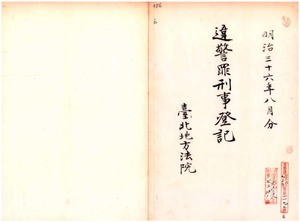 明治三十六年八月分
違警罪刑事登記
臺北地方法院